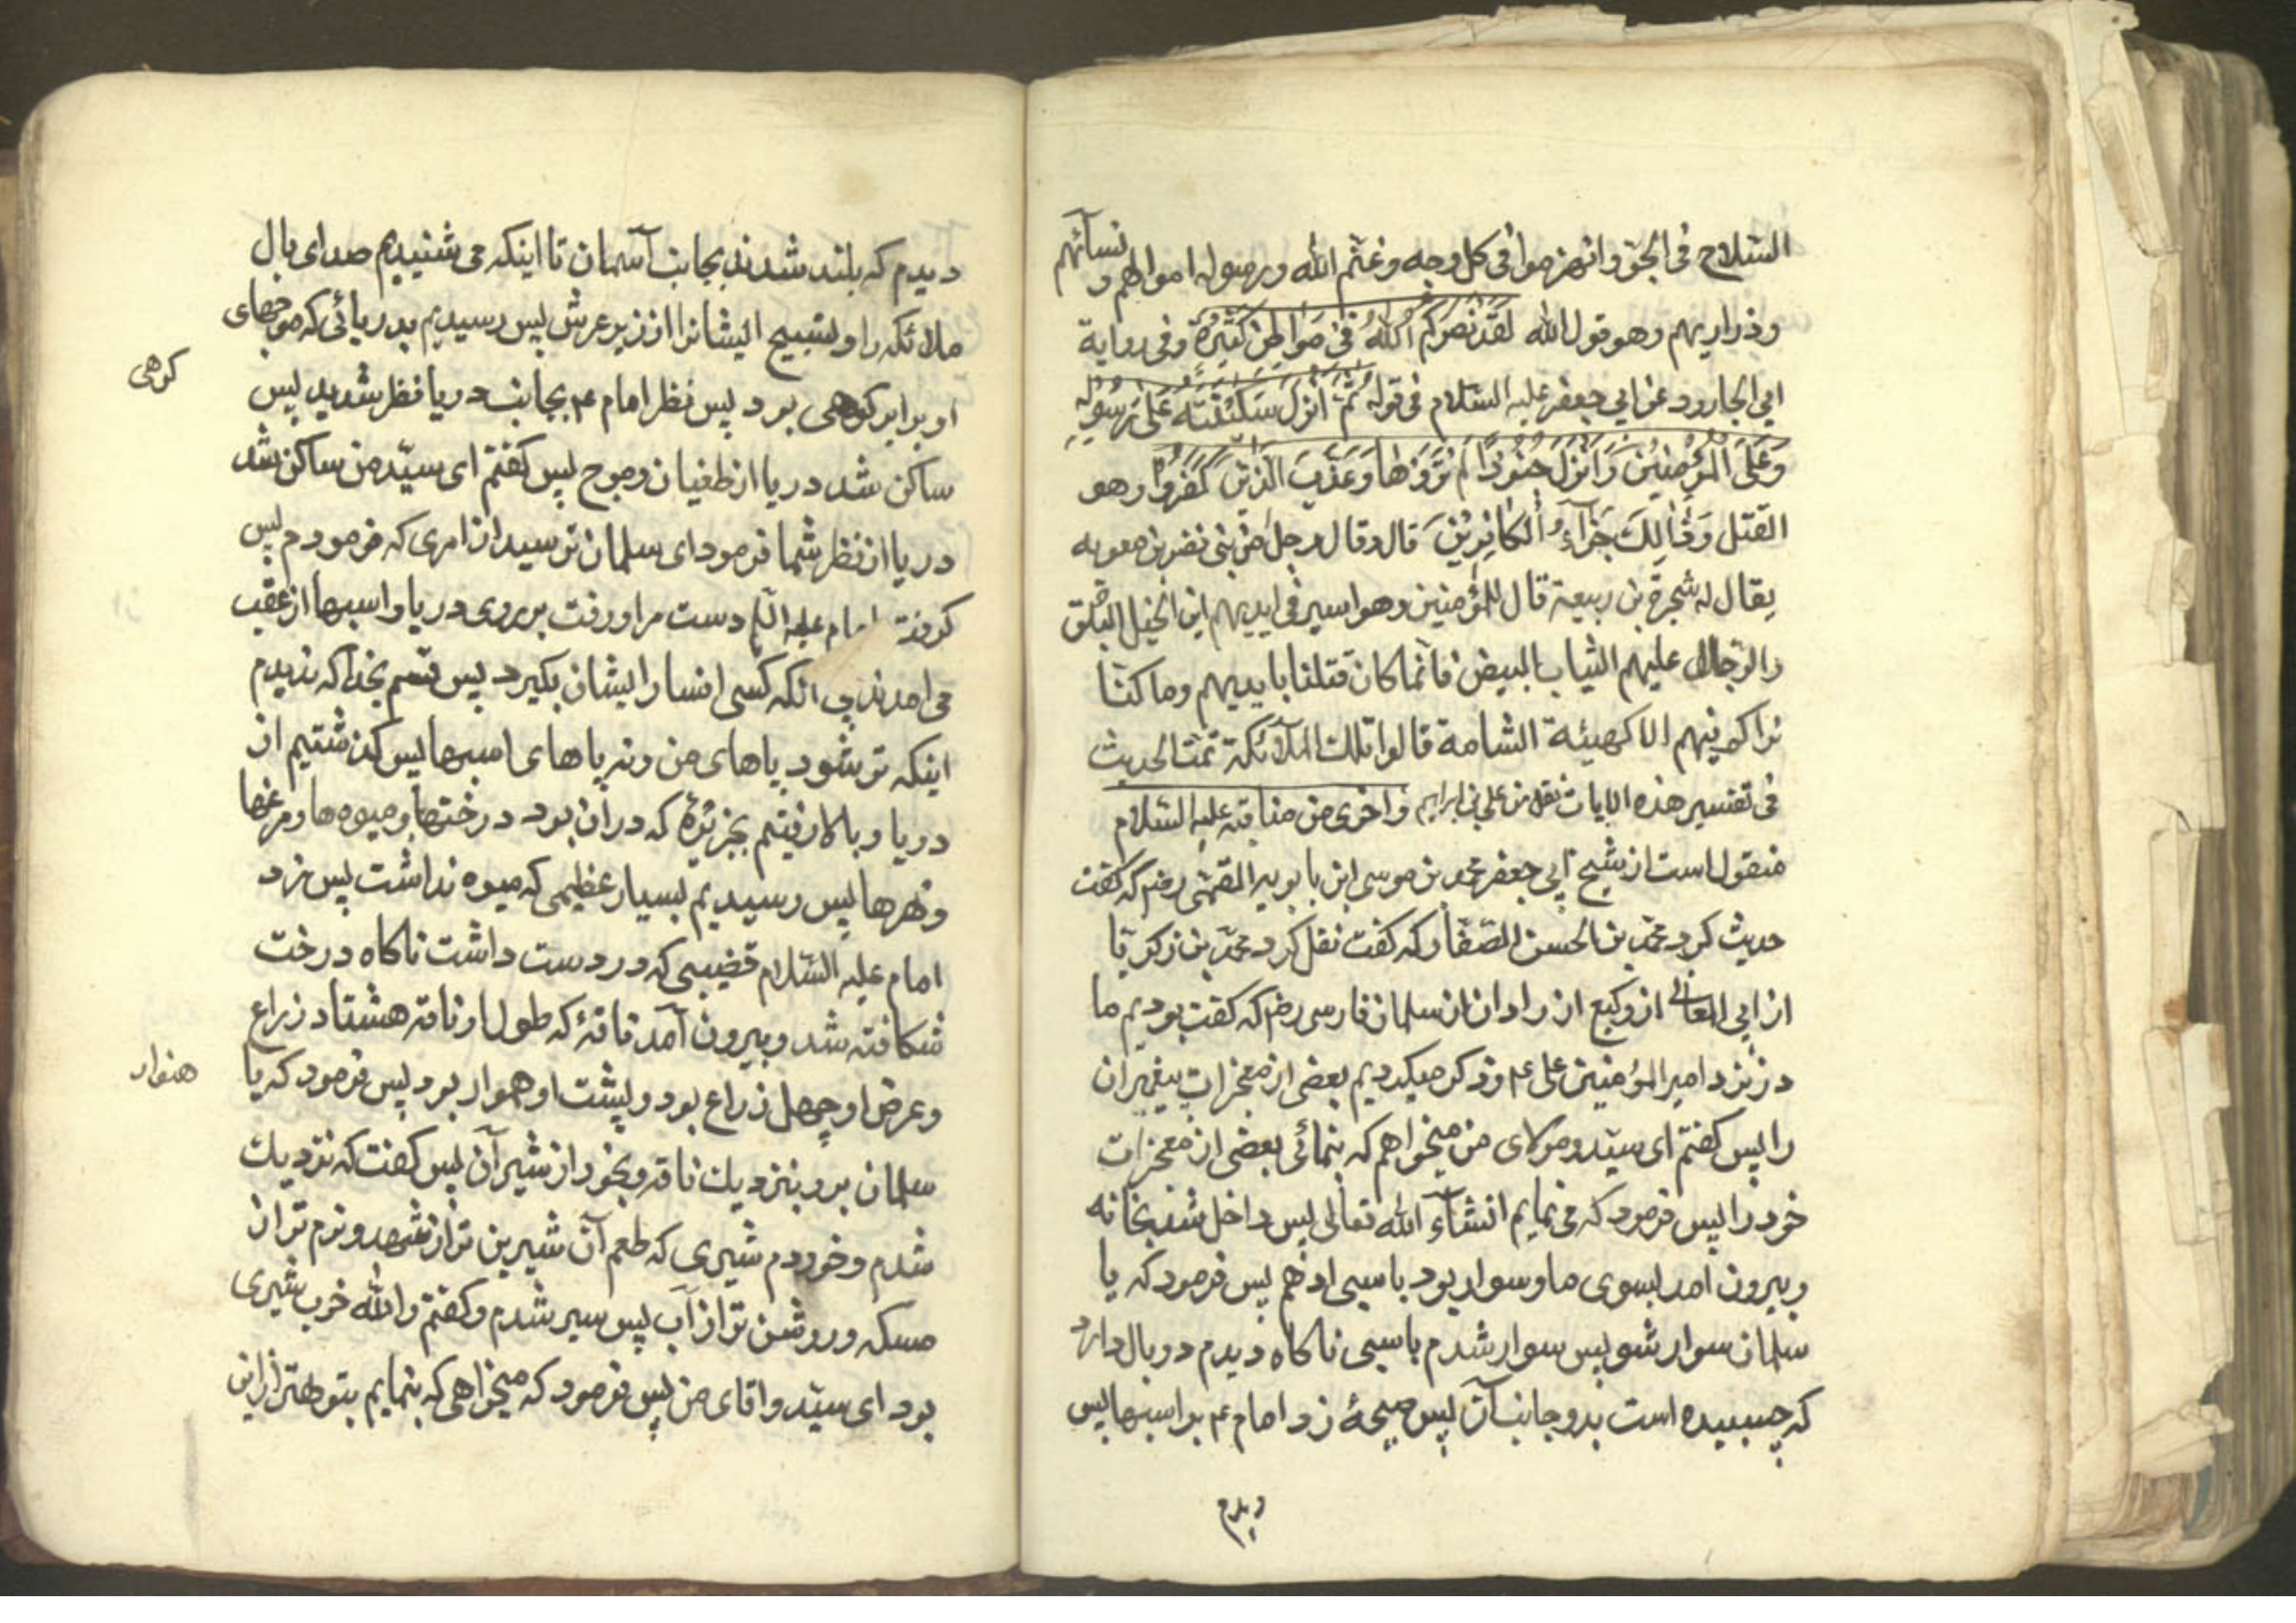 السّلاح فی الجوّ وانهزموا فی کل وجه وغنّم الله ورسوله اموالهم ونسآئهم
وذراریهم وهو قول الله لَقَدْ نَصَرَکُمُ اللهُ فی مَوَاطِنَ کَثِیْرَةٍ وفی روایة
ابی الجارود عن ابی جعفر علیه السّلام فی قوله ثُمَّ اَنْزَلَ سَکِیْنَتَه عَلی رَسُوْلِهِ
وَعَلَی المُؤْمِنِیْنَ وَاَنْزَلَ جُنُوْدًا لَمْ تَرَوْهَا وَعَذَّبَ الَّذِیْنَ کَفَرُوْا وهو
القتل وَذٰلِكَ جَزَآءُ الْکَافِرِیْنَ قال وقال رجل من بنی نضر بن معویه
یقال له شجرة بن ربیعة قال للمؤمنین وهو اسیر فی ایدیهم این الخیل البلق
والرّجال علیهم الثیاب البیض فانّما کان قتلنا بایدیهم وما کنّا
نراکم فیهم الا کهیئة الشامة قالوا تلك الملآئکة تمّت الحدیث
فی تفسیر هذه الایات نقل من علی بن ابراهیم واخری من مناقبه علیه السّلام
منقول است از شیخ ابی جعفر محمد بن موسی ابن بابویه القمّی رضم که کفت
حدیث کرد محمّد بن الحسن الصّفّار که کفت نقل کرد محمّد بن زکریّا
از ابی المعالی از وکیع از زادان از سلمان فارسی رضم که کفت بودیم ما
در نزد امیر المؤمنین علی ۴ وذکر میکردیم بعضی از معجزات پیغمبران
را پس کفتم ای سیّد ومولای من میخواهم که بنمائی بعضی از معجزات
خود را پس فرمود که می نمایم انشاء الله تعالی پس داخل شد بخانه
وبیرون امد بسوی ما وسوار بود باسبی ادهم پس فرمود که یا
سلمان سوار شو پس سوار شدم باسبی ناکاه دیدم دو بال دارد
که چسبیده است بدو جانب آن پس صیحهٔ زد امام ۴ بر اسبها پس
دیدم
دیدم که بلند شدند بجانب آسمان تا اینکه می شنیدم صدای بال
ملائکه را وتسبیح ایشانرا از زیر عرش پس رسیدیم بدریائی که موجهای
او برابر کوهی بود پس نظر امام ۴ بجانب دریا نظر شدید پس
کوهی
ساکن شد دریا از طغیان وموج پس کفتم ای سیّد من ساکن شد
دریا از نظر شما فرمود ای سلمان ترسید از امری که فرمودم پس
کرفت امام علیه السّلام دست مرا ورفت بر روی دریا واسبها از عقب
می امدند بی انکه کسی افسار ایشان بکیرد پس قسم بخدا که ندیدم
اینکه تر شود پاهای من ونه پاهای اسبها پس کذشتیم از
دریا وبالا رفتیم بجزیرهٔ که دران بود درختها ومیوه ها ومرغها
ونهرها پس رسیدیم بسیار عظیمی که میوه نداشت پس زد
امام علیه السّلام قضیبی که در دست داشت ناکاه درخت
شکافته شد وبیرون آمد ناقهٔ که طول او ناقه هشتاد زراع
وعرض او چهل زراع بود وپشت او هموار بود پس فرمود که یا
هموار
سلمان برو بنزدیك ناقه وبخور از شیر آن پس کفت که نزدیك
شدم وخوردم شیری که طعم آن شیرین تر از شهد ونرم تر از
مسکه وروشن تر از آب پس سیر شدم وکفتم والله خوب شیری
بود ای سیّد واقای من پس فرمود که میخواهی که بنمایم بتو بهتر از این